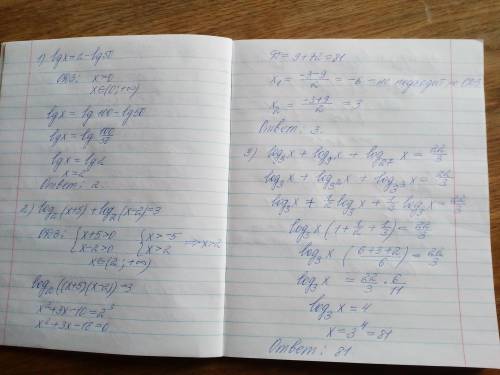 1) lgx = 2 - lg50
ОДЗ: x>0
x∈(0; +∞)
lgx = lg100 - lg50
lgx = lg 100/50
lgx = lg2
x = 2
Ответ: 2.
2) log₂(x+5) + log₂(x-2) = 3
ОДЗ: { x+5>0 { x>-5
x-2>0 x>2 => x>2
x∈(2; +∞)
log₂((x+5)(x-2)) = 3
x²+3x-10 = 2³
x²+3x-18 = 0
D = 9+72 = 81
x₁ = (-3-9)/2 = -6 - не подходит по ОДЗ
x₂ = (-3+9)/2 = 3
Ответ: 3.
3) log₃x + log₉x + log₂₇x = 22/3
log₃x + log₃²x + log₃³x = 22/3
log₃x + 1/2 log₃x + 1/3 log₃x = 22/3
log₃x (1 + 1/2 + 1/3) = 22/3
log₃x (6+3+2)/6) = 22/3
log₃x = 22/3 · 6/11
log₃x = 4
x = 3⁴ = 81
Ответ: 81